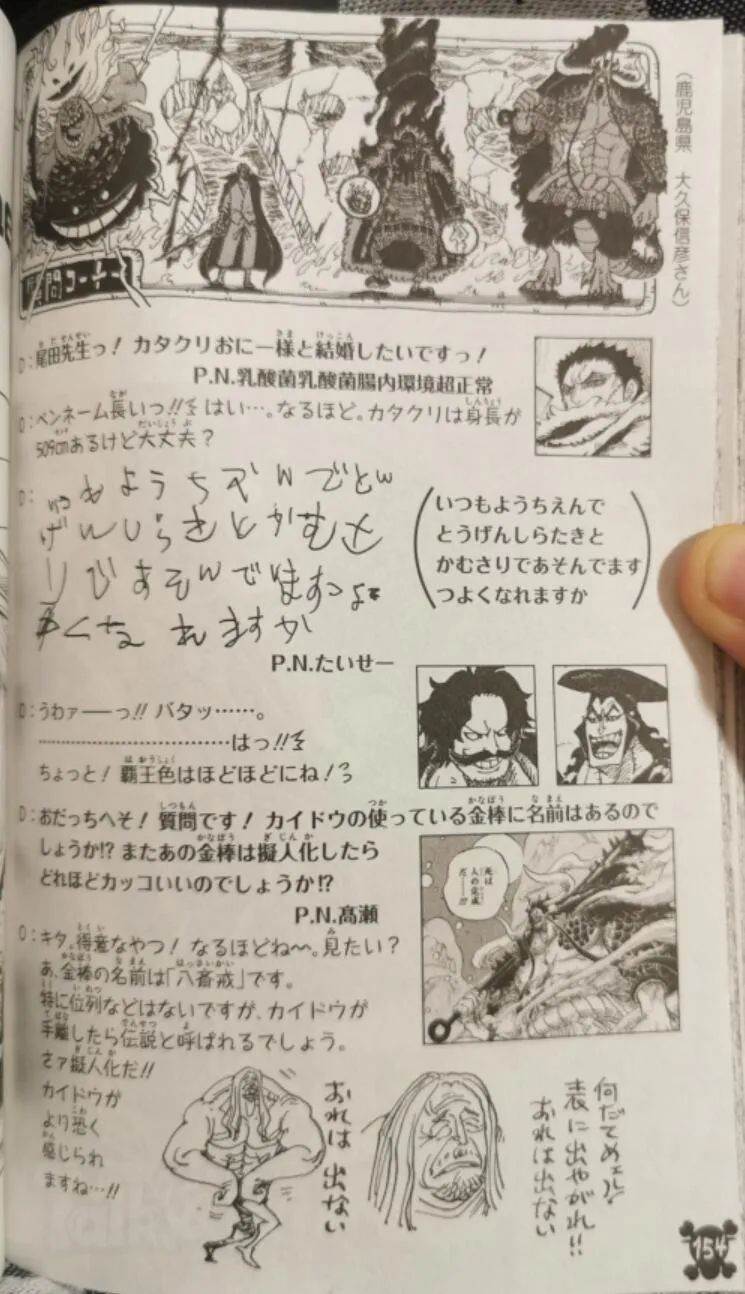 (鹿児島県 大久保信彦さん)
問コーナー
D:尾田先生っ! カタクリおにー様と結婚したいですっ!
P.N.乳酸菌乳酸菌腸内環境超正常
O:ペンネーム長いっ!! はい…。なるほど。カタクリは身長が
509cmあるけど大丈夫?
D:いつもようちえんでとう
げんしらたきとかむさ
りであそんでますつよ
くなれますか
(いつもようちえんで
とうげんしらたきと
かむさりであそんでます
つよくなれますか)
P.N.たいせー
O:うわァーーっ!! バタッ……。
……………………………はっ!!
ちょっと! 覇王色はほどほどにね!
D:おだっちへそ! 質問です! カイドウの使っている金棒に名前はあるので
しょうか!? またあの金棒は擬人化したら
どれほどカッコいいのでしょうか!?
P.N.髙瀬
死は
人の完成
だ──!!!
O:キタ。得意なやつ! なるほどね〜。見たい?
あ、金棒の名前は「八斎戒」です。
特に位列などはないですが、カイドウが
手離したら伝説と呼ばれるでしょう。
さァ擬人化だ!!
カイドウが
より恐く
感じられ
ますね…!!
おれは出ない
何だてめェら!
表に出やがれ!!
おれは出ない
154